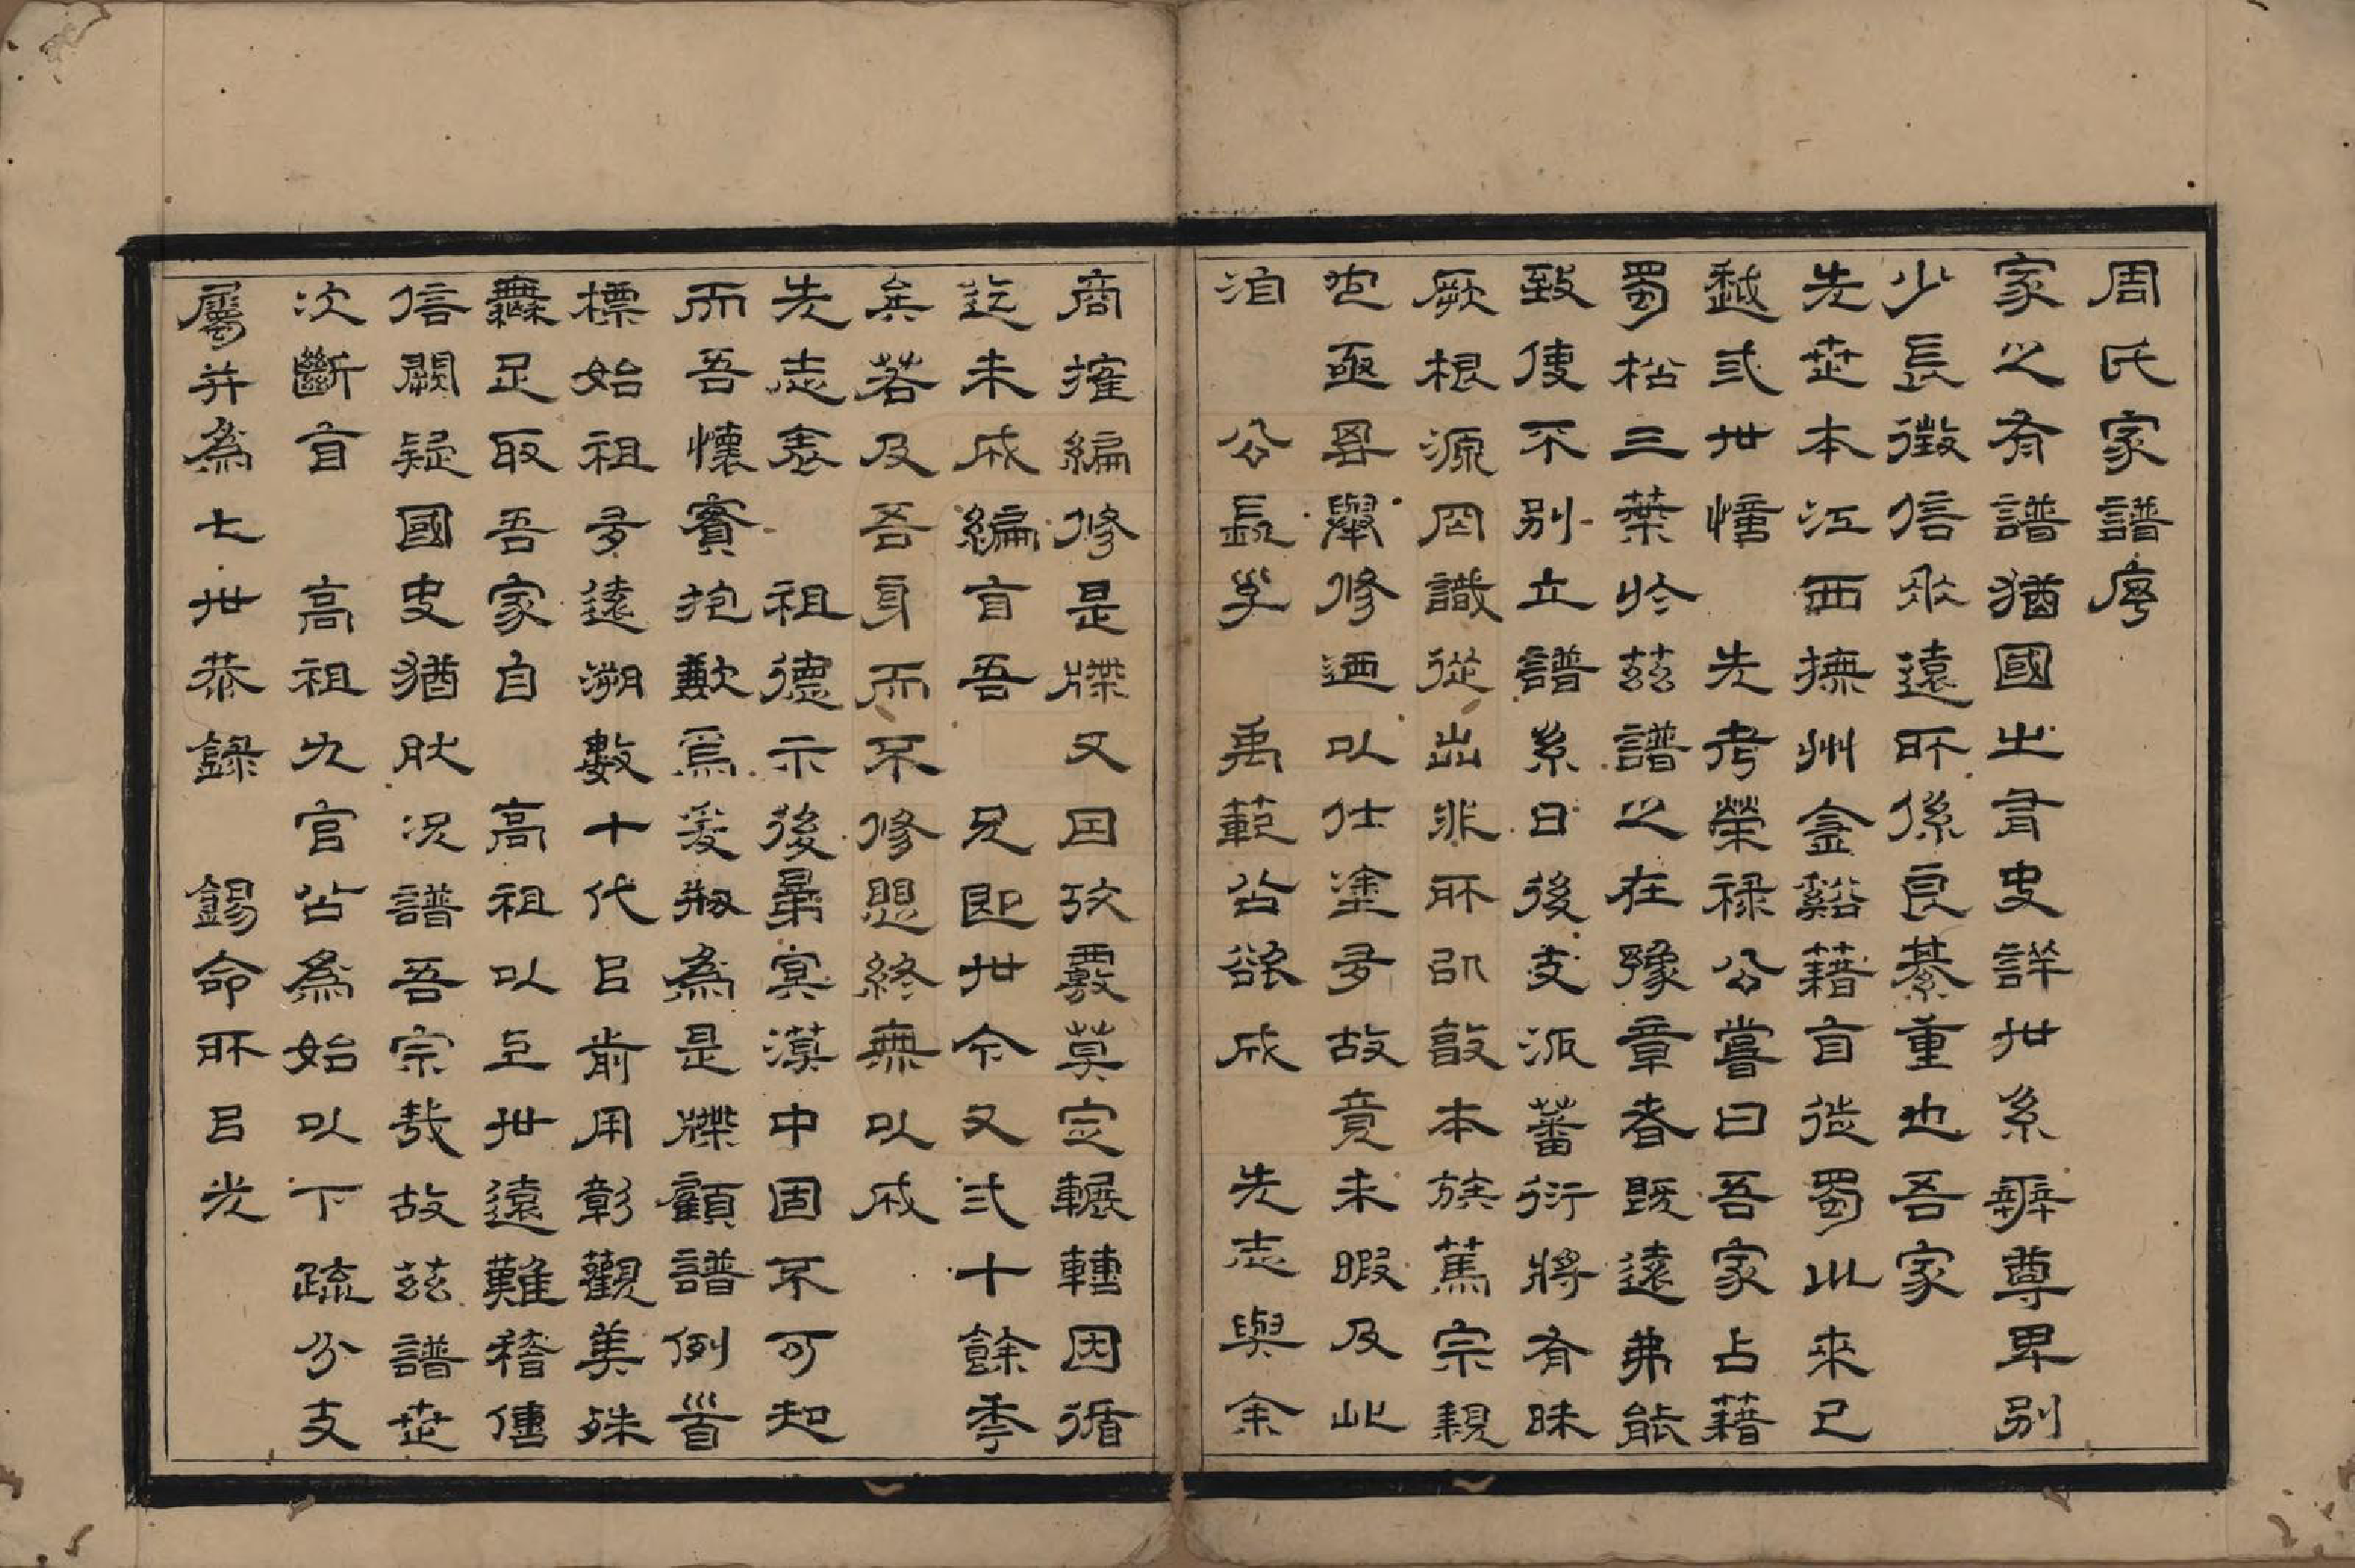 周氏家譜序
家之有譜猶國㞢有史詳世系辨尊卑別
少長徵信於遠所係良綦重也吾家
先世本江西撫州金谿藉自徙蜀以來已
越弍世惟　先考榮祿公嘗曰吾家占藉
蜀松三葉於茲譜之在豫章者既遠弗能
致使不別立譜系日後支派蕃衍將有昧
厥根源罔識從出非所以敦本族篤宗親
也亟畀舉修迺以仕塗多故竟未暇及此
洎　公長孚　禹範公欲成　先志與余
商搉編修是牒又因攷覈莫定輾轉因循
迄未成編自吾　兄即世今又弍十餘季
矣若及吾身而不修愳終無以成
先志表　祖德示後㬪冥漠中固不可起
而吾懷實抱歉焉爰刱為是牒顧譜例首
標始祖多遠溯數十代㠯前用彰觀美殊
無足取吾家自　高祖以上世遠難稽傳
信闕疑國史猶肰況譜吾宗哉故茲譜世
次斷自　高祖九官公為始以下疏分支
屬并為七世恭錄　錫命所㠯光